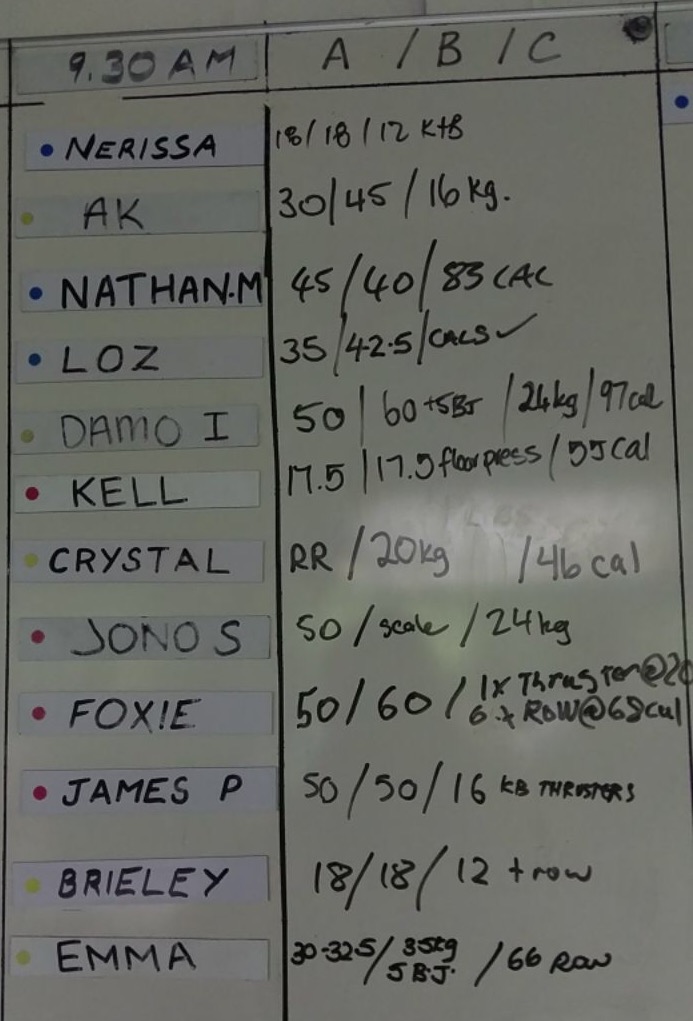 9.30 AM A / B / C
NERISSA 18/18/12 KtB
AK 30/45/16kg.
NATHAN.M 45/40/83 CAL
LOZ 35/42.5/CALS ✓
DAMO I 50/60+5BJ/24kg/97cal
KELL 17.5/17.5 floor press/55 Cal
CRYSTAL RR/20kg /46 cal
JONO S 50/scale/24kg
FOXIE 50/60/1x Thruster@20
6x ROW@68cal
JAMES P 50/50/16 KB THRUSTERS
BRIELEY 18/18/12 + row
EMMA 30-32.5/35kg
5BJ. /66 Row